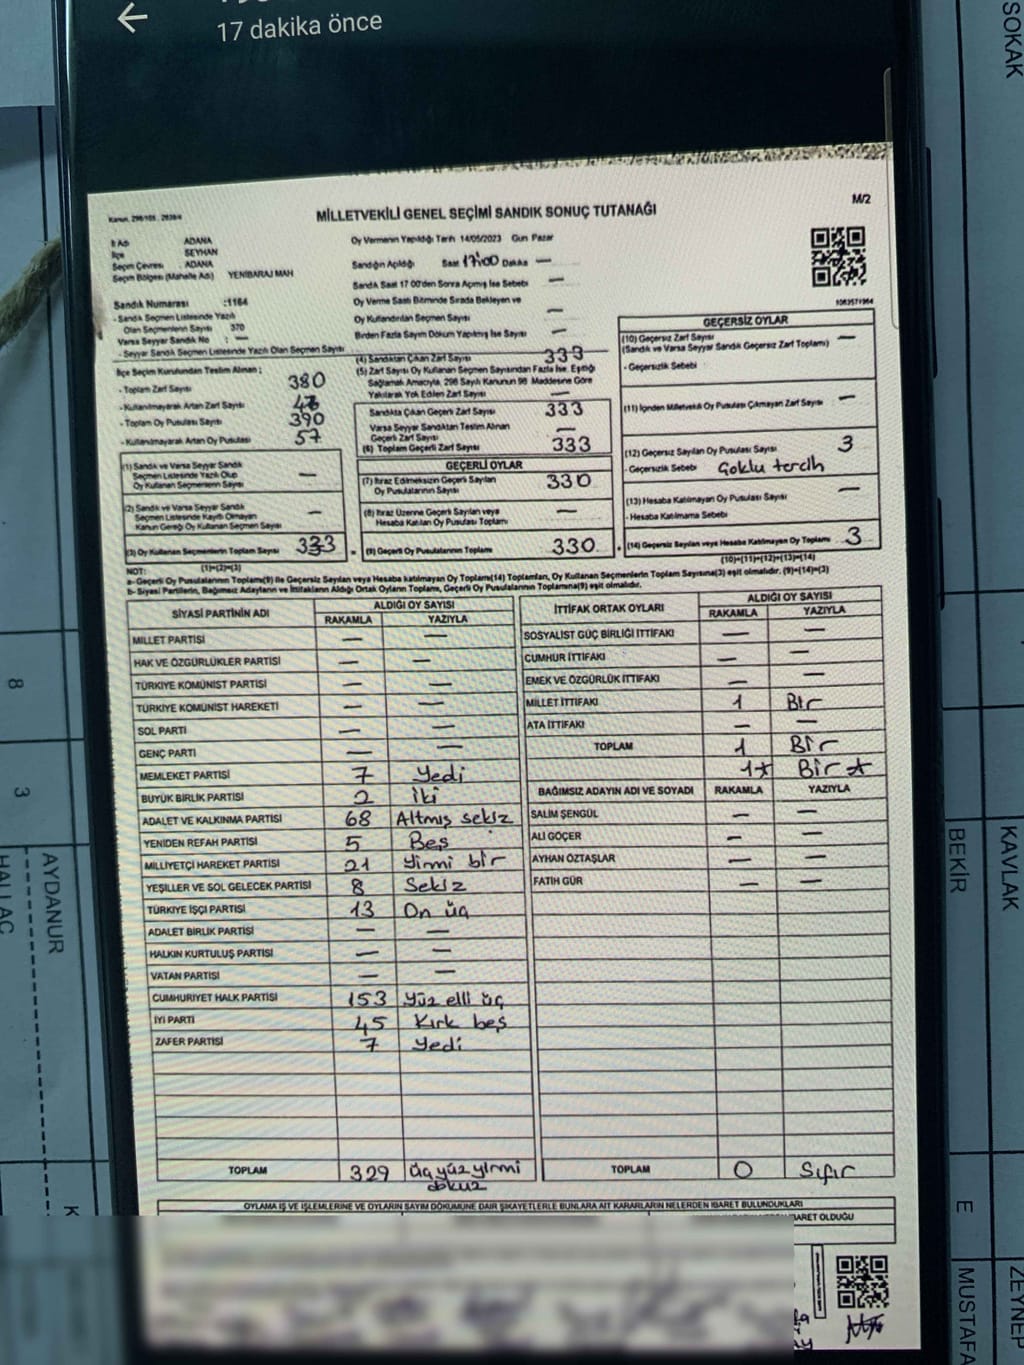 17 dakika önce
M/2
MİLLETVEKİLİ GENEL SEÇİMİ SANDIK SONUÇ TUTANAĞI
İl Adı ADANA
İlçe SEYHAN
Seçim Çevresi : ADANA
Seçim Bölgesi (Mahalle Adı) YENİBARAJ MAH
Sandık Numarası :1164
- Sandık Seçmen Listesinde Yazılı
Olan Seçmenlerin Sayısı 370
Varsa Seyyar Sandık No : —
- Seyyar Sandık Seçmen Listesinde Yazılı Olan Seçmen Sayısı
İlçe Seçim Kurulundan Teslim Alınan ;
- Toplam Zarf Sayısı 380
- Kullanılmayarak Artan Zarf Sayısı
- Toplam Oy Pusulası Sayısı 390
- Kullanılmayarak Artan Oy Pusulası 57
(1) Sandık ve Varsa Seyyar Sandık
Seçmen Listesinde Yazılı Olup
Oy Kullanan Seçmenlerin Sayısı —
(2) Sandık ve Varsa Seyyar Sandık
Seçmen Listesinde Kayıtlı Olmayan
Kanun Gereği Oy Kullanan Seçmen Sayısı —
(3) Oy Kullanan Seçmenlerin Toplam Sayısı 333
Oy Vermenin Yapıldığı Tarih 14/05/2023 Gün Pazar
Sandığın Açıldığı Saat 17:00 Dakika —
Sandık Saat 17:00'den Sonra Açmış İse Sebebi —
Oy Verme Saati Bitiminde Sırada Bekleyen ve
Oy Kullandırılan Seçmen Sayısı —
Birden Fazla Sayım Döküm Yapılmış İse Sayısı —
(4) Sandıktan Çıkan Zarf Sayısı 333
(5) Zarf Sayısı Oy Kullanan Seçmen Sayısından Fazla İse, Eşitliği
Sağlamak Amacıyla, 298 Sayılı Kanunun 98. Maddesine Göre
Yakılarak Yok Edilen Zarf Sayısı —
Sandıkta Çıkan Geçerli Zarf Sayısı 333
Varsa Seyyar Sandıktan Teslim Alınan
Geçerli Zarf Sayısı —
(6) Toplam Geçerli Zarf Sayısı 333
GEÇERLİ OYLAR
(7) İtiraz Edilmeksizin Geçerli Sayılan
Oy Pusulalarının Sayısı 330
(8) İtiraz Üzerine Geçerli Sayılan veya
Hesaba Katılan Oy Pusulası Toplamı —
= (9) Geçerli Oy Pusulalarının Toplamı 330
1063571964
GEÇERSİZ OYLAR
(10) Geçersiz Zarf Sayısı —
(Sandık ve Varsa Seyyar Sandık Geçersiz Zarf Toplamı)
- Geçersizlik Sebebi
(11) İçinden Milletvekili Oy Pusulası Çıkmayan Zarf Sayısı —
(12) Geçersiz Sayılan Oy Pusulası Sayısı 3
- Geçersizlik Sebebi Çoklu tercih
(13) Hesaba Katılmayan Oy Pusulası Sayısı —
- Hesaba Katılmama Sebebi
+ (14) Geçersiz Sayılan veya Hesaba Katılmayan Oy Toplamı 3
NOT: (1)+(2)=(3) (10)+(11)+(12)+(13)=(14)
a- Geçerli Oy Pusulalarının Toplamı(9) ile Geçersiz Sayılan veya Hesaba katılmayan Oy Toplamı(14) Toplamları, Oy Kullanan Seçmenlerin Toplam Sayısına(3) eşit olmalıdır. (9)+(14)=(3)
b- Siyasi Partilerin, Bağımsız Adayların ve İttifakların Aldığı Ortak Oyların Toplamı, Geçerli Oy Pusulalarının Toplamına(9) eşit olmalıdır.
SİYASİ PARTİNİN ADI ALDIĞI OY SAYISI
RAKAMLA YAZIYLA
MİLLET PARTİSİ — —
HAK VE ÖZGÜRLÜKLER PARTİSİ — —
TÜRKİYE KOMÜNİST PARTİSİ — —
TÜRKİYE KOMÜNİST HAREKETİ — —
SOL PARTİ — —
GENÇ PARTİ — —
MEMLEKET PARTİSİ 7 Yedi
BÜYÜK BİRLİK PARTİSİ 2 İki
ADALET VE KALKINMA PARTİSİ 68 Altmış sekiz
YENİDEN REFAH PARTİSİ 5 Beş
MİLLİYETÇİ HAREKET PARTİSİ 21 Yirmi bir
YEŞİLLER VE SOL GELECEK PARTİSİ 8 Sekiz
TÜRKİYE İŞÇİ PARTİSİ 13 On üç
ADALET BİRLİK PARTİSİ — —
HALKIN KURTULUŞ PARTİSİ — —
VATAN PARTİSİ — —
CUMHURİYET HALK PARTİSİ 153 Yüz elli üç
İYİ PARTİ 45 Kırk beş
ZAFER PARTİSİ 7 Yedi
TOPLAM 329 Üç yüz yirmi
dokuz
İTTİFAK ORTAK OYLARI ALDIĞI OY SAYISI
RAKAMLA YAZIYLA
SOSYALİST GÜÇ BİRLİĞİ İTTİFAKI — —
CUMHUR İTTİFAKI — —
EMEK VE ÖZGÜRLÜK İTTİFAKI — —
MİLLET İTTİFAKI 1 Bir
ATA İTTİFAKI — —
TOPLAM 1 Bir
1* Bir *
BAĞIMSIZ ADAYIN ADI VE SOYADI RAKAMLA YAZIYLA
SALİM ŞENGÜL — —
ALİ GÖÇER — —
AYHAN ÖZTAŞLAR — —
FATİH GÜR — —
TOPLAM 0 Sıfır
OYLAMA İŞ VE İŞLEMLERİNE VE OYLARIN SAYIM DÖKÜMÜNE DAİR ŞİKAYETLERLE BUNLARA AİT KARARLARIN NELERDEN İBARET BULUNDUKLARI
İBARET OLDUĞU
8
3
AYDANUR
SOKAK
BEKİR
KAVLAK
E
MUSTAFA
ZEYNEP